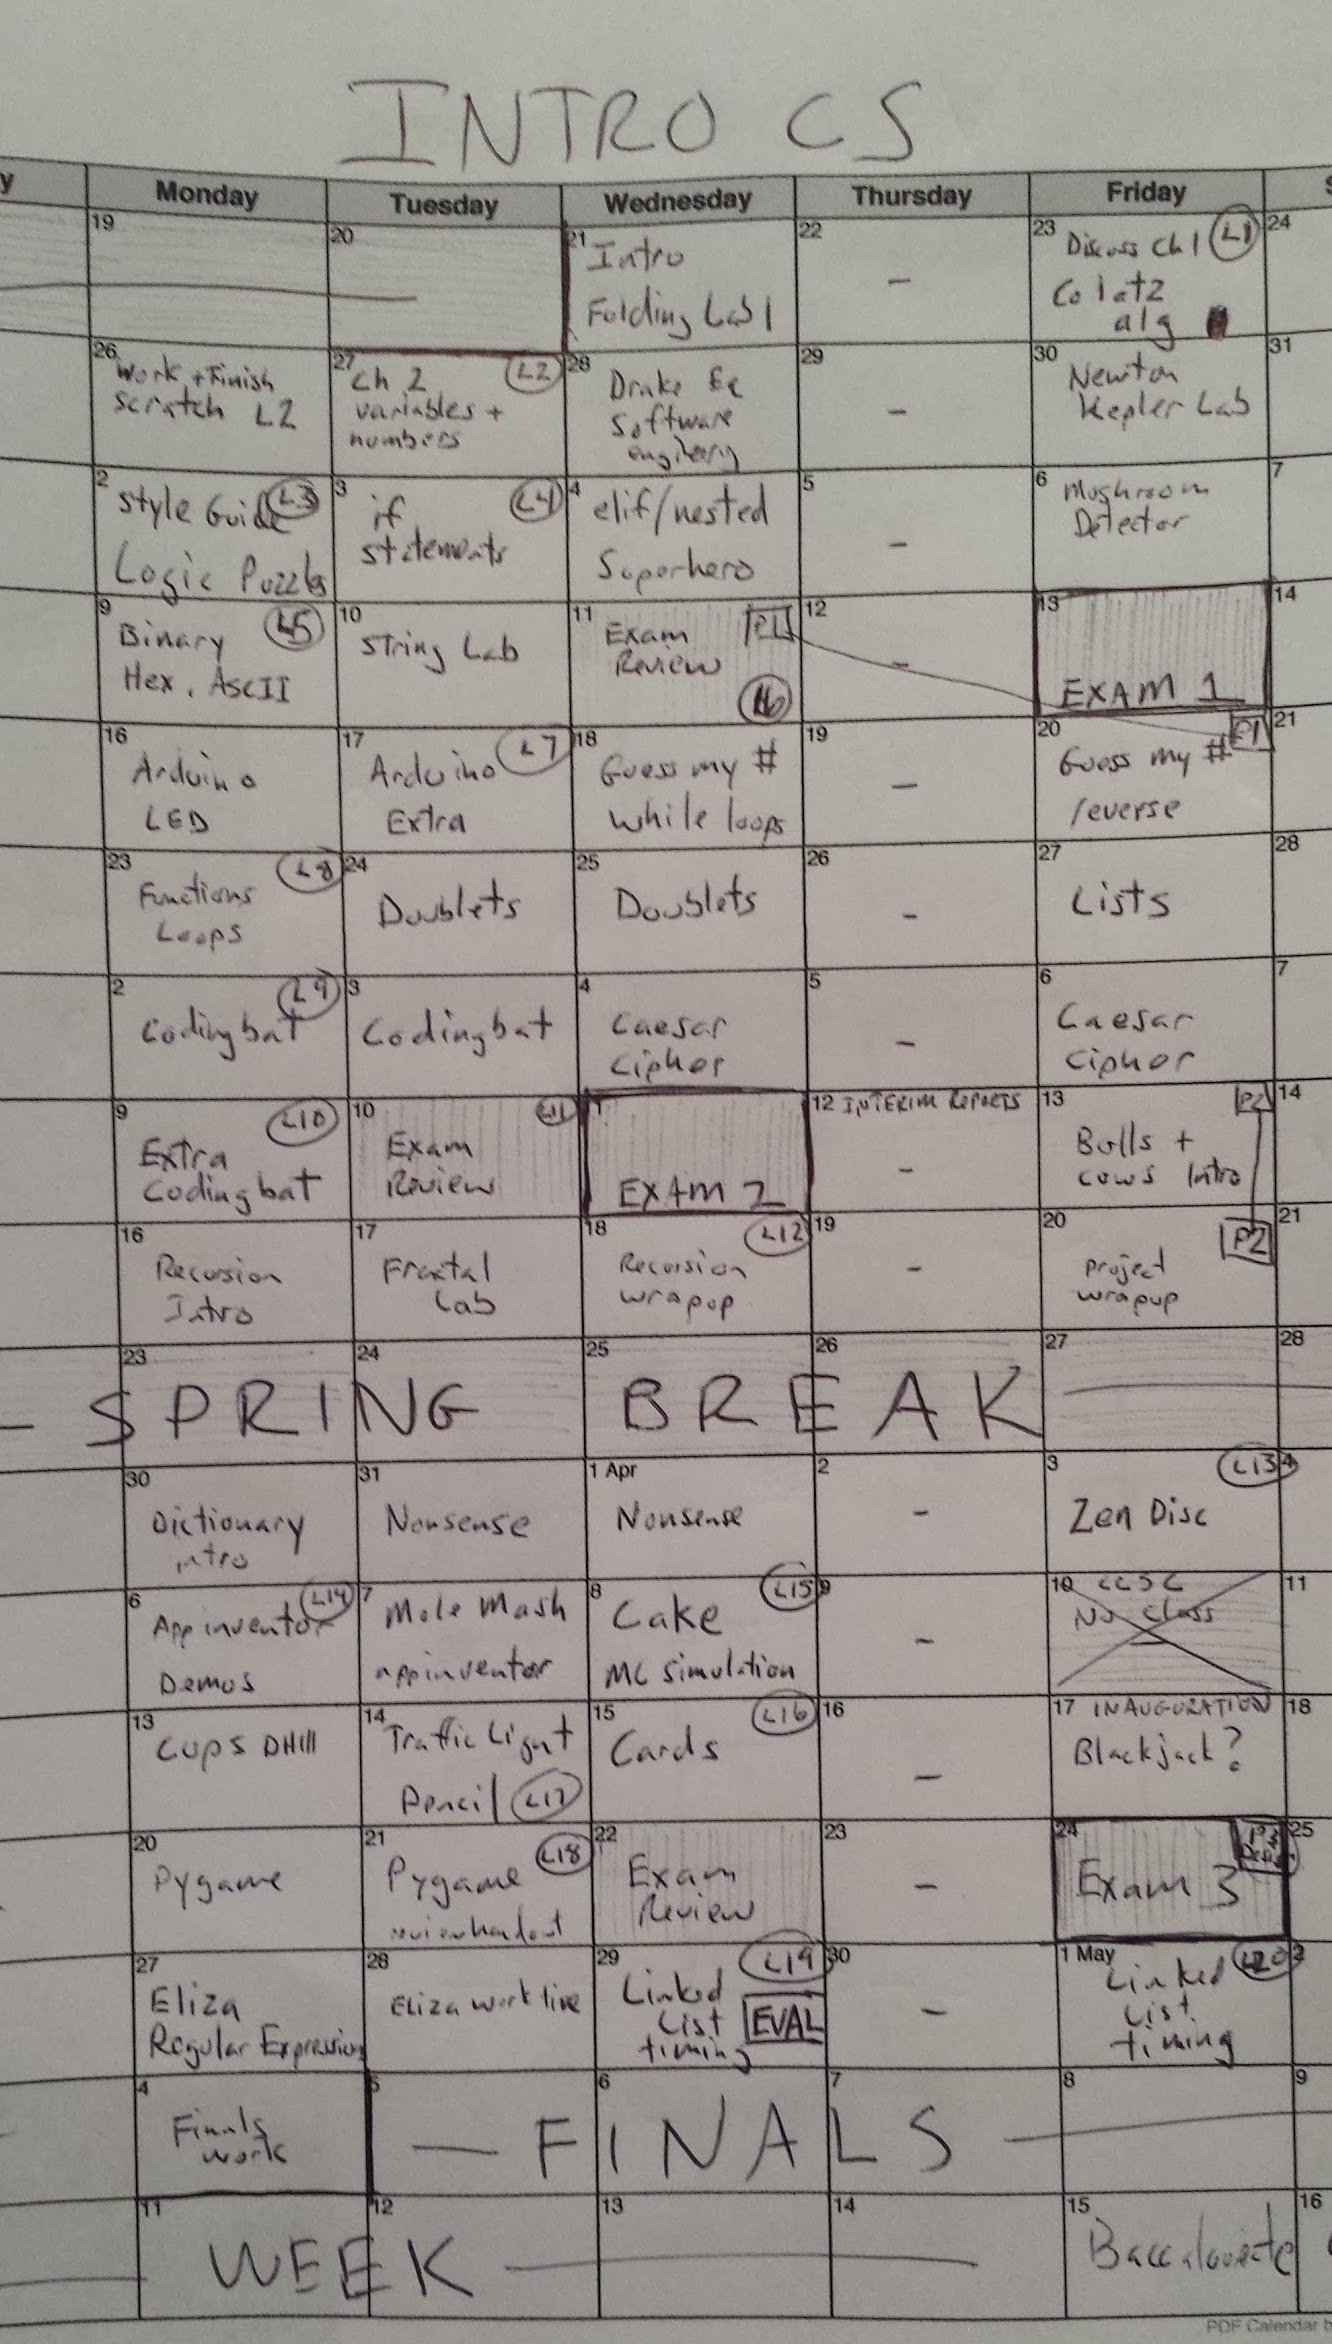 INTRO CS
y Monday Tuesday Wednesday Thursday Friday S
19
20
21 Intro
Folding Lab 1
22 -
23 Discuss Ch 1 L1
Colatz
alg
24
26 Work + Finish
Scratch L2
27 Ch 2 L2
variables +
numbers
28 Drake Eq
Software
29 -
30 Newton
Kepler Lab
31
2 Style Guide L3
Logic Puzzles
3 if L4
statements
4 elif/nested
Superhero
5 -
6 Mushroom
Detector
7
9 Binary L5
Hex, ASCII
10 String Lab
11 Exam P1
Review
12 -
13
EXAM 1
14
16 Arduino
LED
17 Arduino L7
Extra
18 Guess my #
while loops
19 -
20 P1
Guess my #
reverse
21
23 L8
Functions
Loops
24
Doublets
25
Doublets
26 -
27
Lists
28
2 L9
Codingbat
3
Codingbat
4
Caesar
Cipher
5 -
6
Caesar
Cipher
7
9 L10
Extra
Codingbat
10 L11
Exam
Review
11
EXAM 2
12 INTERIM REPORTS
-
13 P2
Bulls +
Cows Intro
14
16
Recursion
Intro
17
Fractal
Lab
18 L12
Recursion
wrapup
19 -
20 P2
Project
wrapup
21
23 24 25 26 27 28
- SPRING BREAK
30
Dictionary
intro
31
Nonsense
1 Apr
Nonsense
2 -
3 L13
Zen Disc
4
6 L14
App inventor
Demos
7 Mole Mash
appinventor
8 L15
Cake
MC Simulation
9 -
10 CCSC
No Class
11
13
Cups DHill
14 Traffic Light
Pencil L17
15 L16
Cards
16 -
17 INAUGURATION
Blackjack?
18
20
Pygame
21 L18
Pygame
22
Exam
Review
23 -
24 P3
Exam 3
25
27
Eliza
Regular Expressions
28
Eliza work live
29 L19
Linked
List EVAL
timing
30 -
1 May L20
Linked
List
timing
2
4
Finals
work
5 6 7 8 9
- FINALS -
11 12 13 14
WEEK
15
Baccalaureate
16
PDF Calendar b